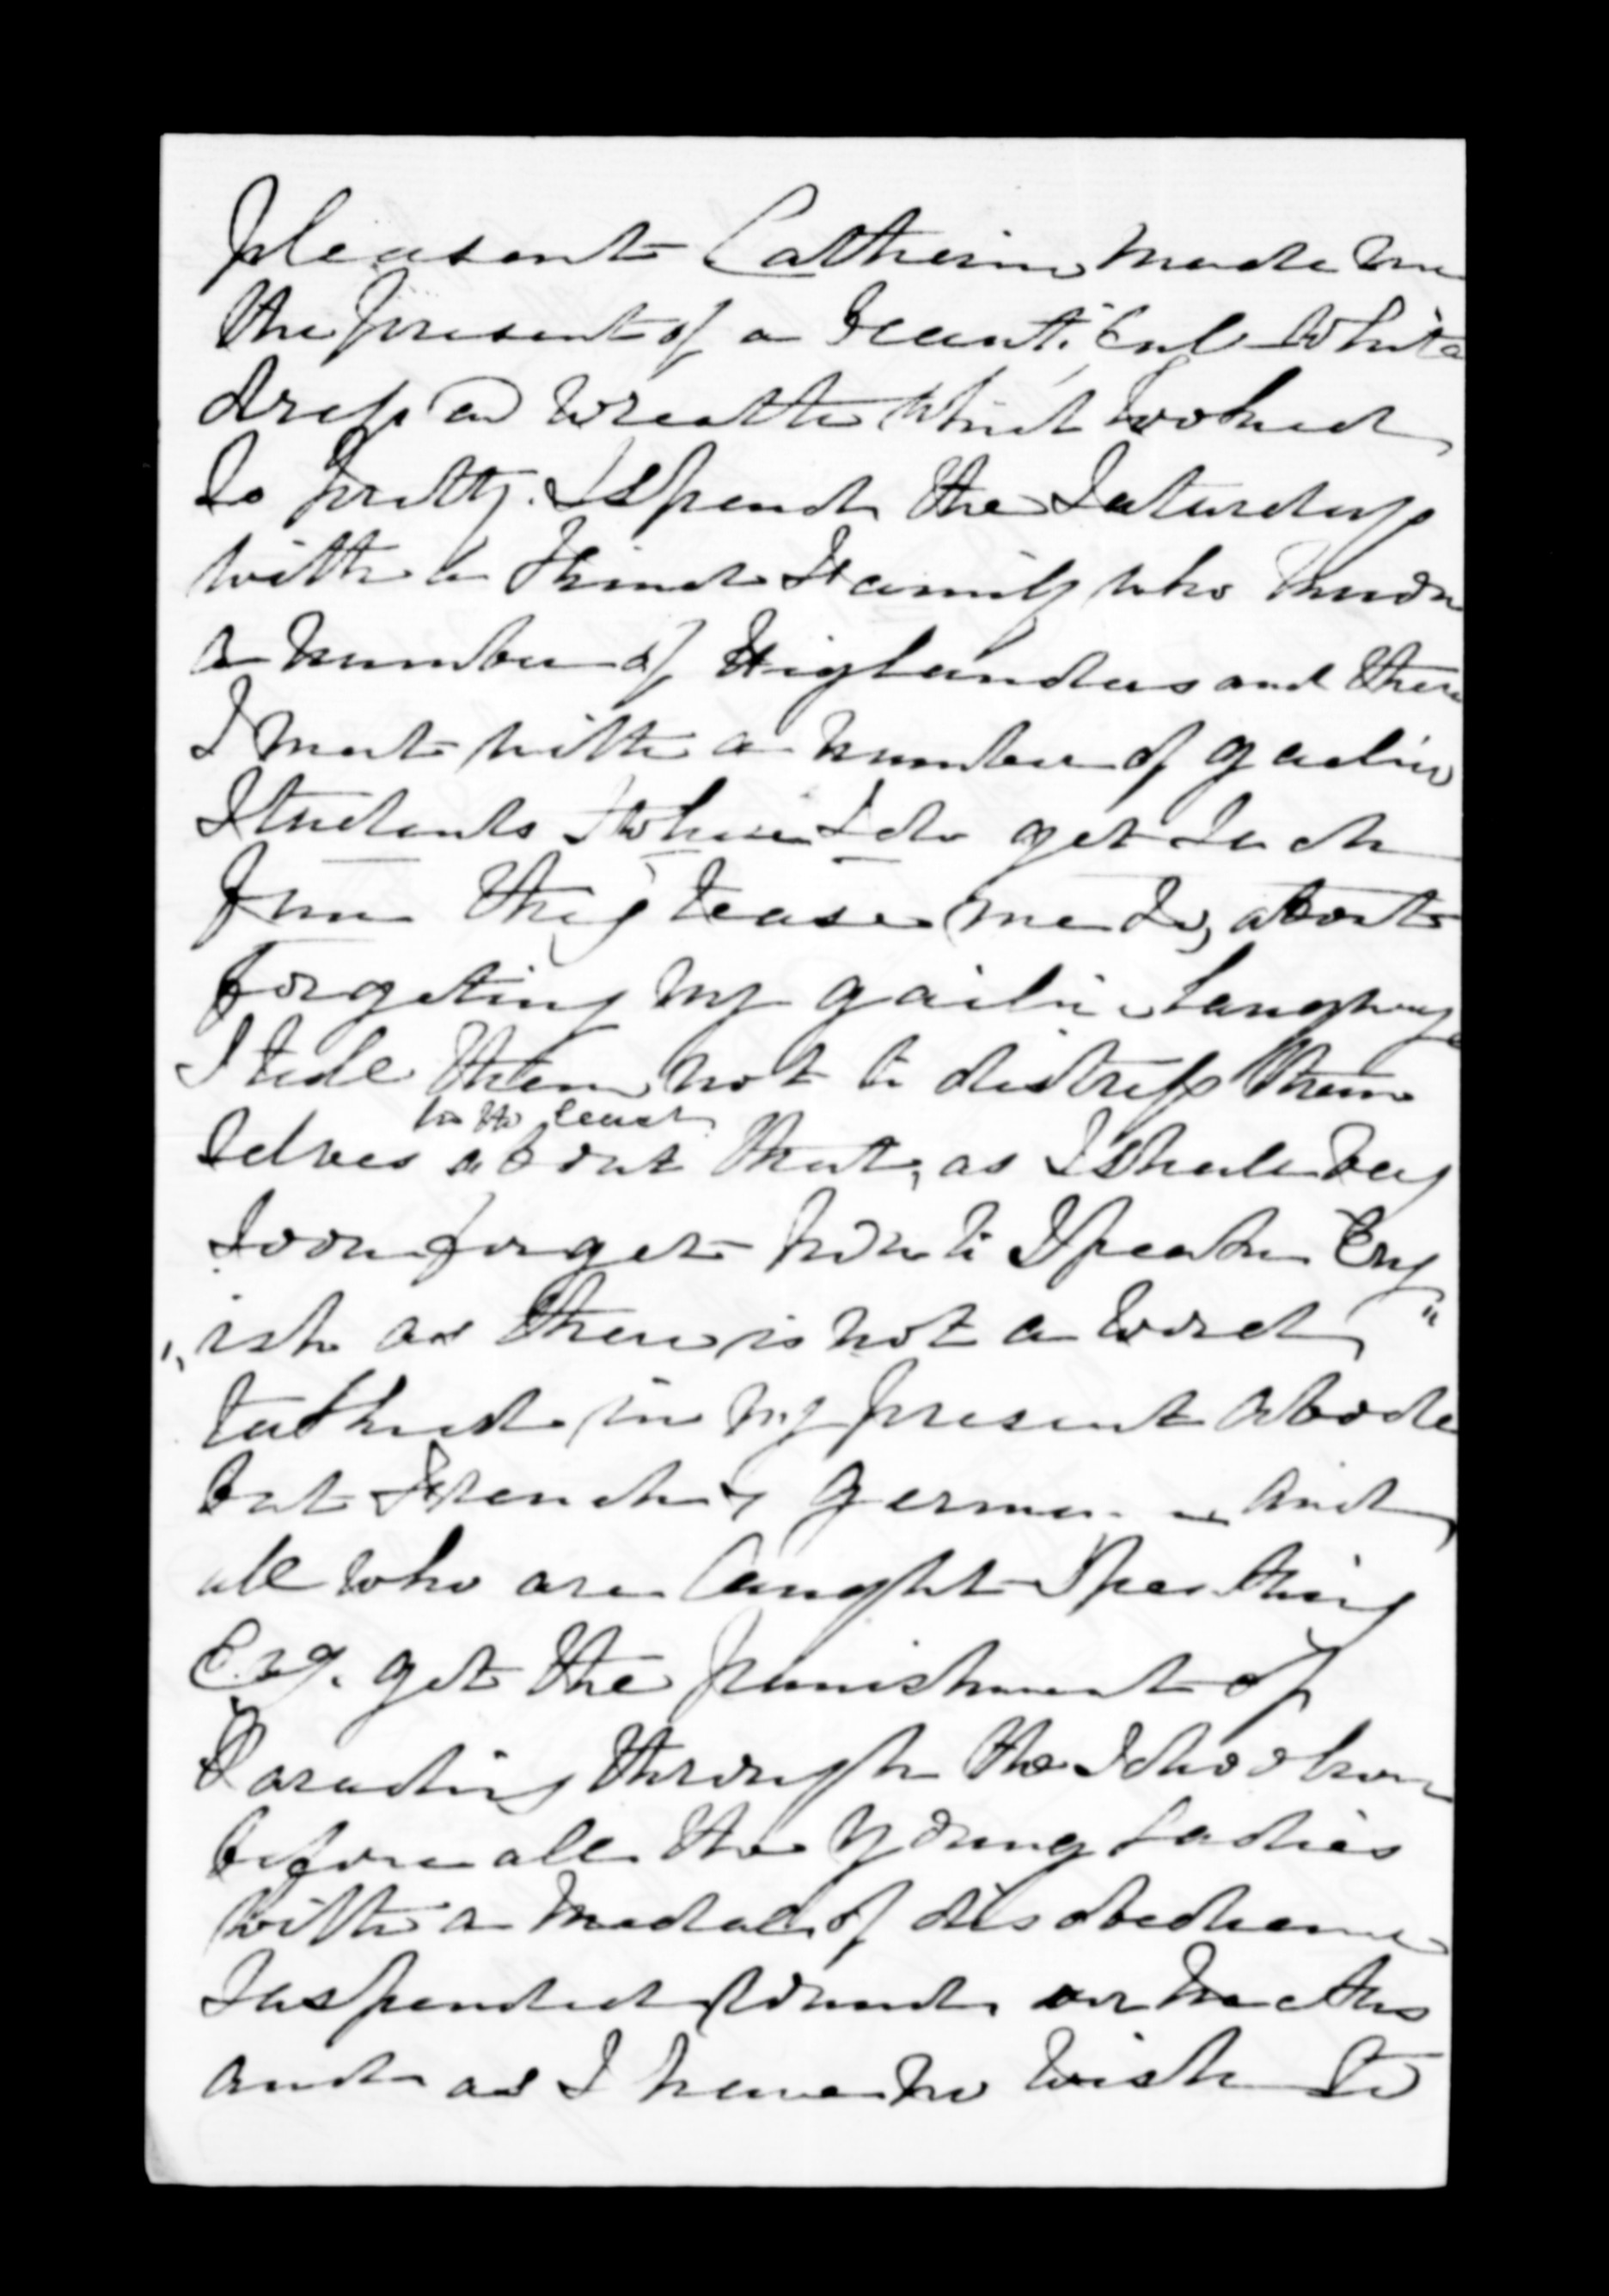 pleasant Catherine made me
the present of a beautiful white
dress and wreath which looked
so pretty. I spend the Saturday
with a kind Family who know
a number of Highlanders and there
I meet with a number of gaelic
Students where I do get such
fun they tease me so, about
forgeting my gaelic Language
I tell them not to distress them
in the least
selves about that, as I shall beg
soon forget how to Speak Eng
"ish as there is not a word "
talked in my present abode
but French & german and
all who are caught speaking
Eng. get the punishment of
Parading through the Schoolroom
before all the young Ladies
with a medal of disobedience
suspended round our necks
and as I have no wish to